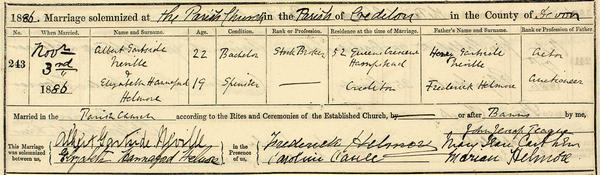 1886. Marriage solemnized at the Parish Church in the Parish of Crediton in the County of Devon
No. When Married. Name and Surname. Age. Condition. Rank or Profession. Residence at the time of Marriage. Father's Name and Surname. Rank or Profession of Father.
243 Novr 3rd 1886
Albert Gartside Neville 22 Bachelor Stock Broker 52 Queens Crescent Hampstead Henry Gartside Neville Actor
Elizabeth Hannaford Helmore 19 Spinster Crediton Frederick Helmore Auctioneer
Married in the Parish Church according to the Rites and Ceremonies of the Established Church, by or after Banns by me,
This Marriage was solemnized between us, Albert Gartside Neville
Elizabeth Hannaford Helmore
in the Presence of us, Frederick Helmore
Caroline
Marian Helmore